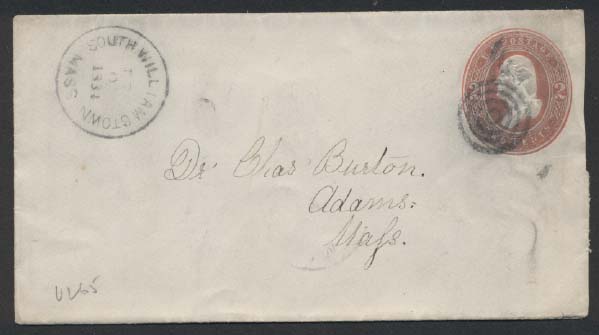 SOUTH WILLIAMSTOWN MASS
U.S. POSTAGE
Dr Chas Burton.
Adams.
Mass.
U265